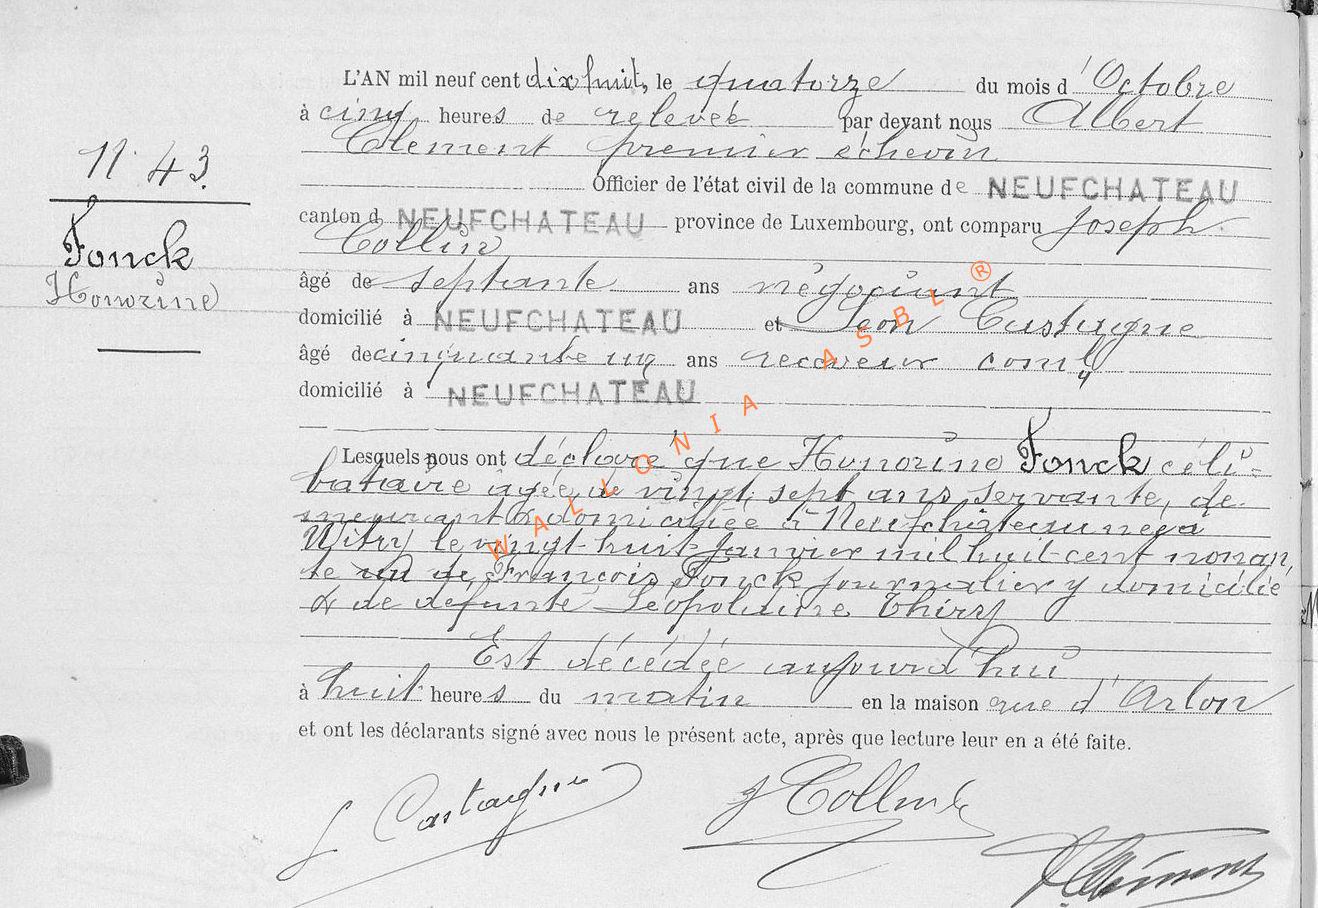 N° 43.
Fonck
Honorine
L'AN mil neuf cent dix huit, le quatorze du mois d'Octobre
à cinq heures de relevée par devant nous Albert
Clément premier échevin
Officier de l'état civil de la commune de NEUFCHATEAU
canton d NEUFCHATEAU province de Luxembourg, ont comparu Joseph
Collin
âgé de septante ans négociant
domicilié à NEUFCHATEAU et Léon Castagne
âgé de cinquante un ans receveur comal
domicilié à NEUFCHATEAU
Lesquels nous ont déclaré que Honorine Fonck céli=
bataire âgée de vingt sept ans servante, de
meurant & domiciliée à Neufchâteau née à
Witry le vingt-huit Janvier mil huit-cent nonan
te un de François Fonck journalier y domicilié
& de défunte Léopoldine Thiry
Est décédée aujourd'hui
à huit heures du matin en la maison rue d'Arlon
et ont les déclarants signé avec nous le présent acte, après que lecture leur en a été faite.
L Castagne J Collin
A Clément
WALLONIA ASBL ®